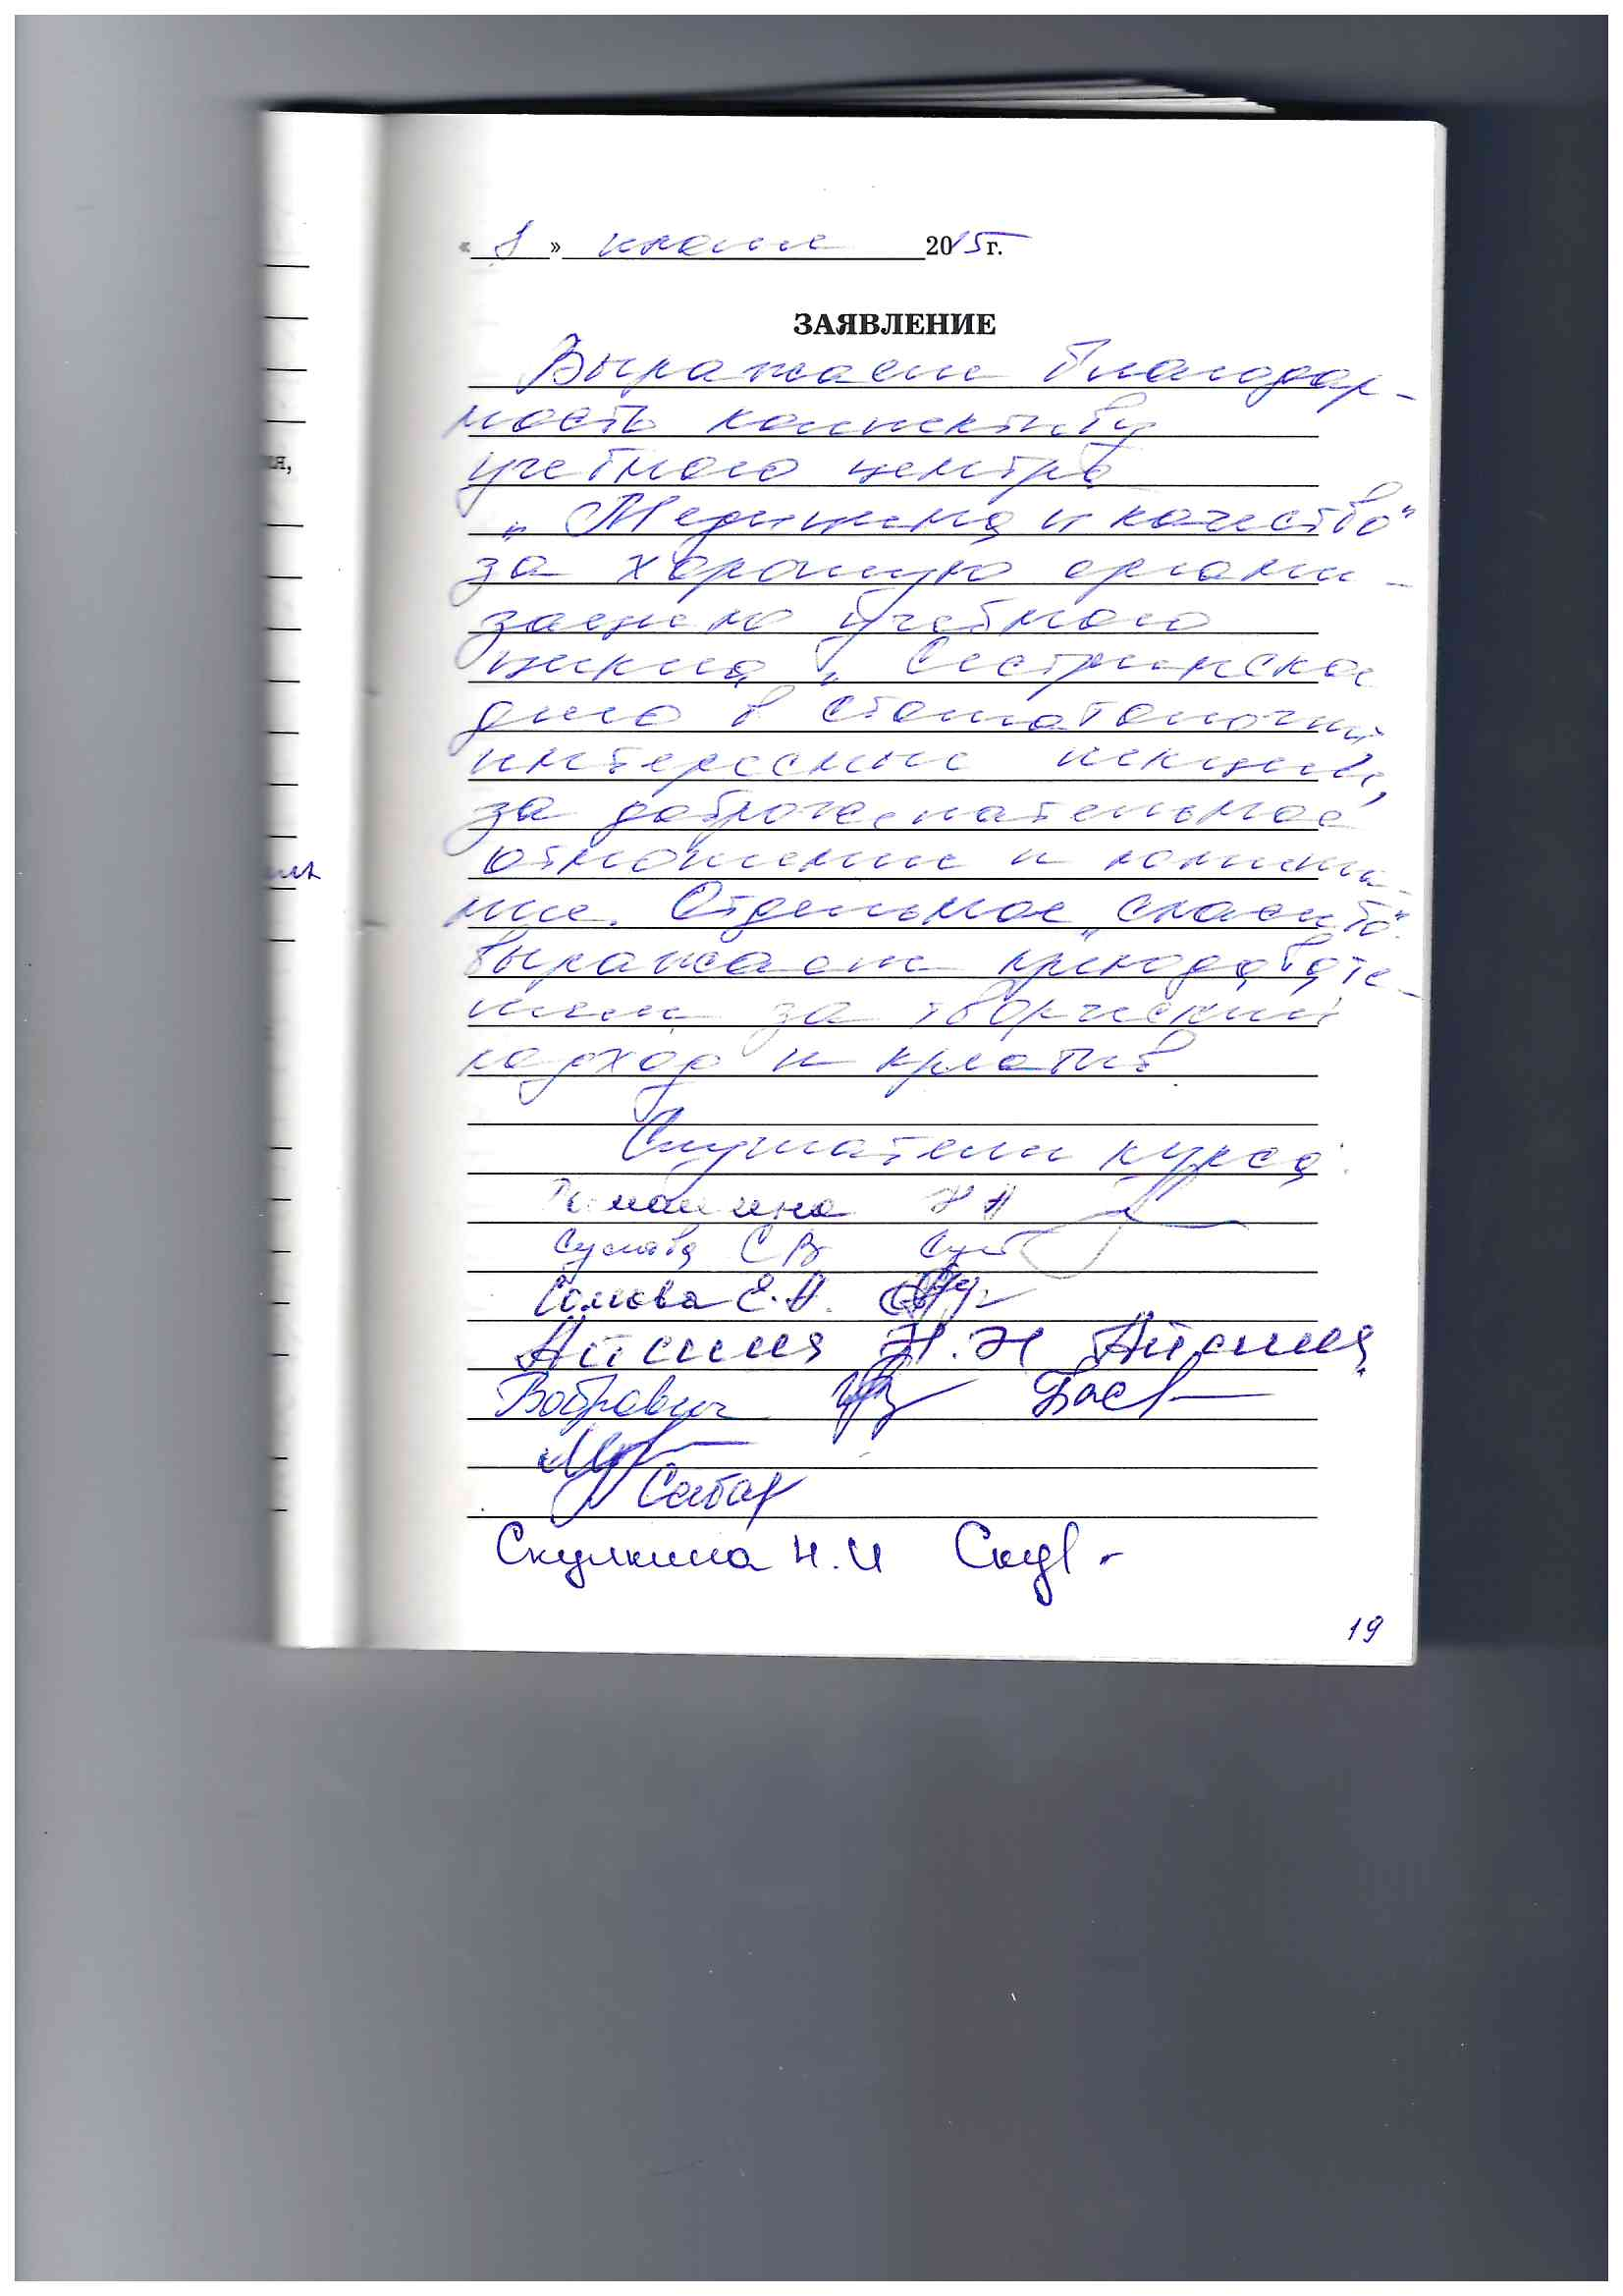 « 8 » июля 2015 г.
ЗАЯВЛЕНИЕ
Выражаем благодар-
ность коллективу
учебного центра
„Медицина и качество“
за хорошую органи-
зацию учебного
цикла „ Сестринское
дело в стоматологии,
интересные лекции,
за доброжелательное
отношение и понима-
ние. Отдельное „спасибо“
выражаем преподавате-
лям за творческий
подход и креатив
Слушатели курса:
Н А
Суслова С В
Сомова Е. А.
Н. Н
Бобрович
Скулкина Н. И
19
я,